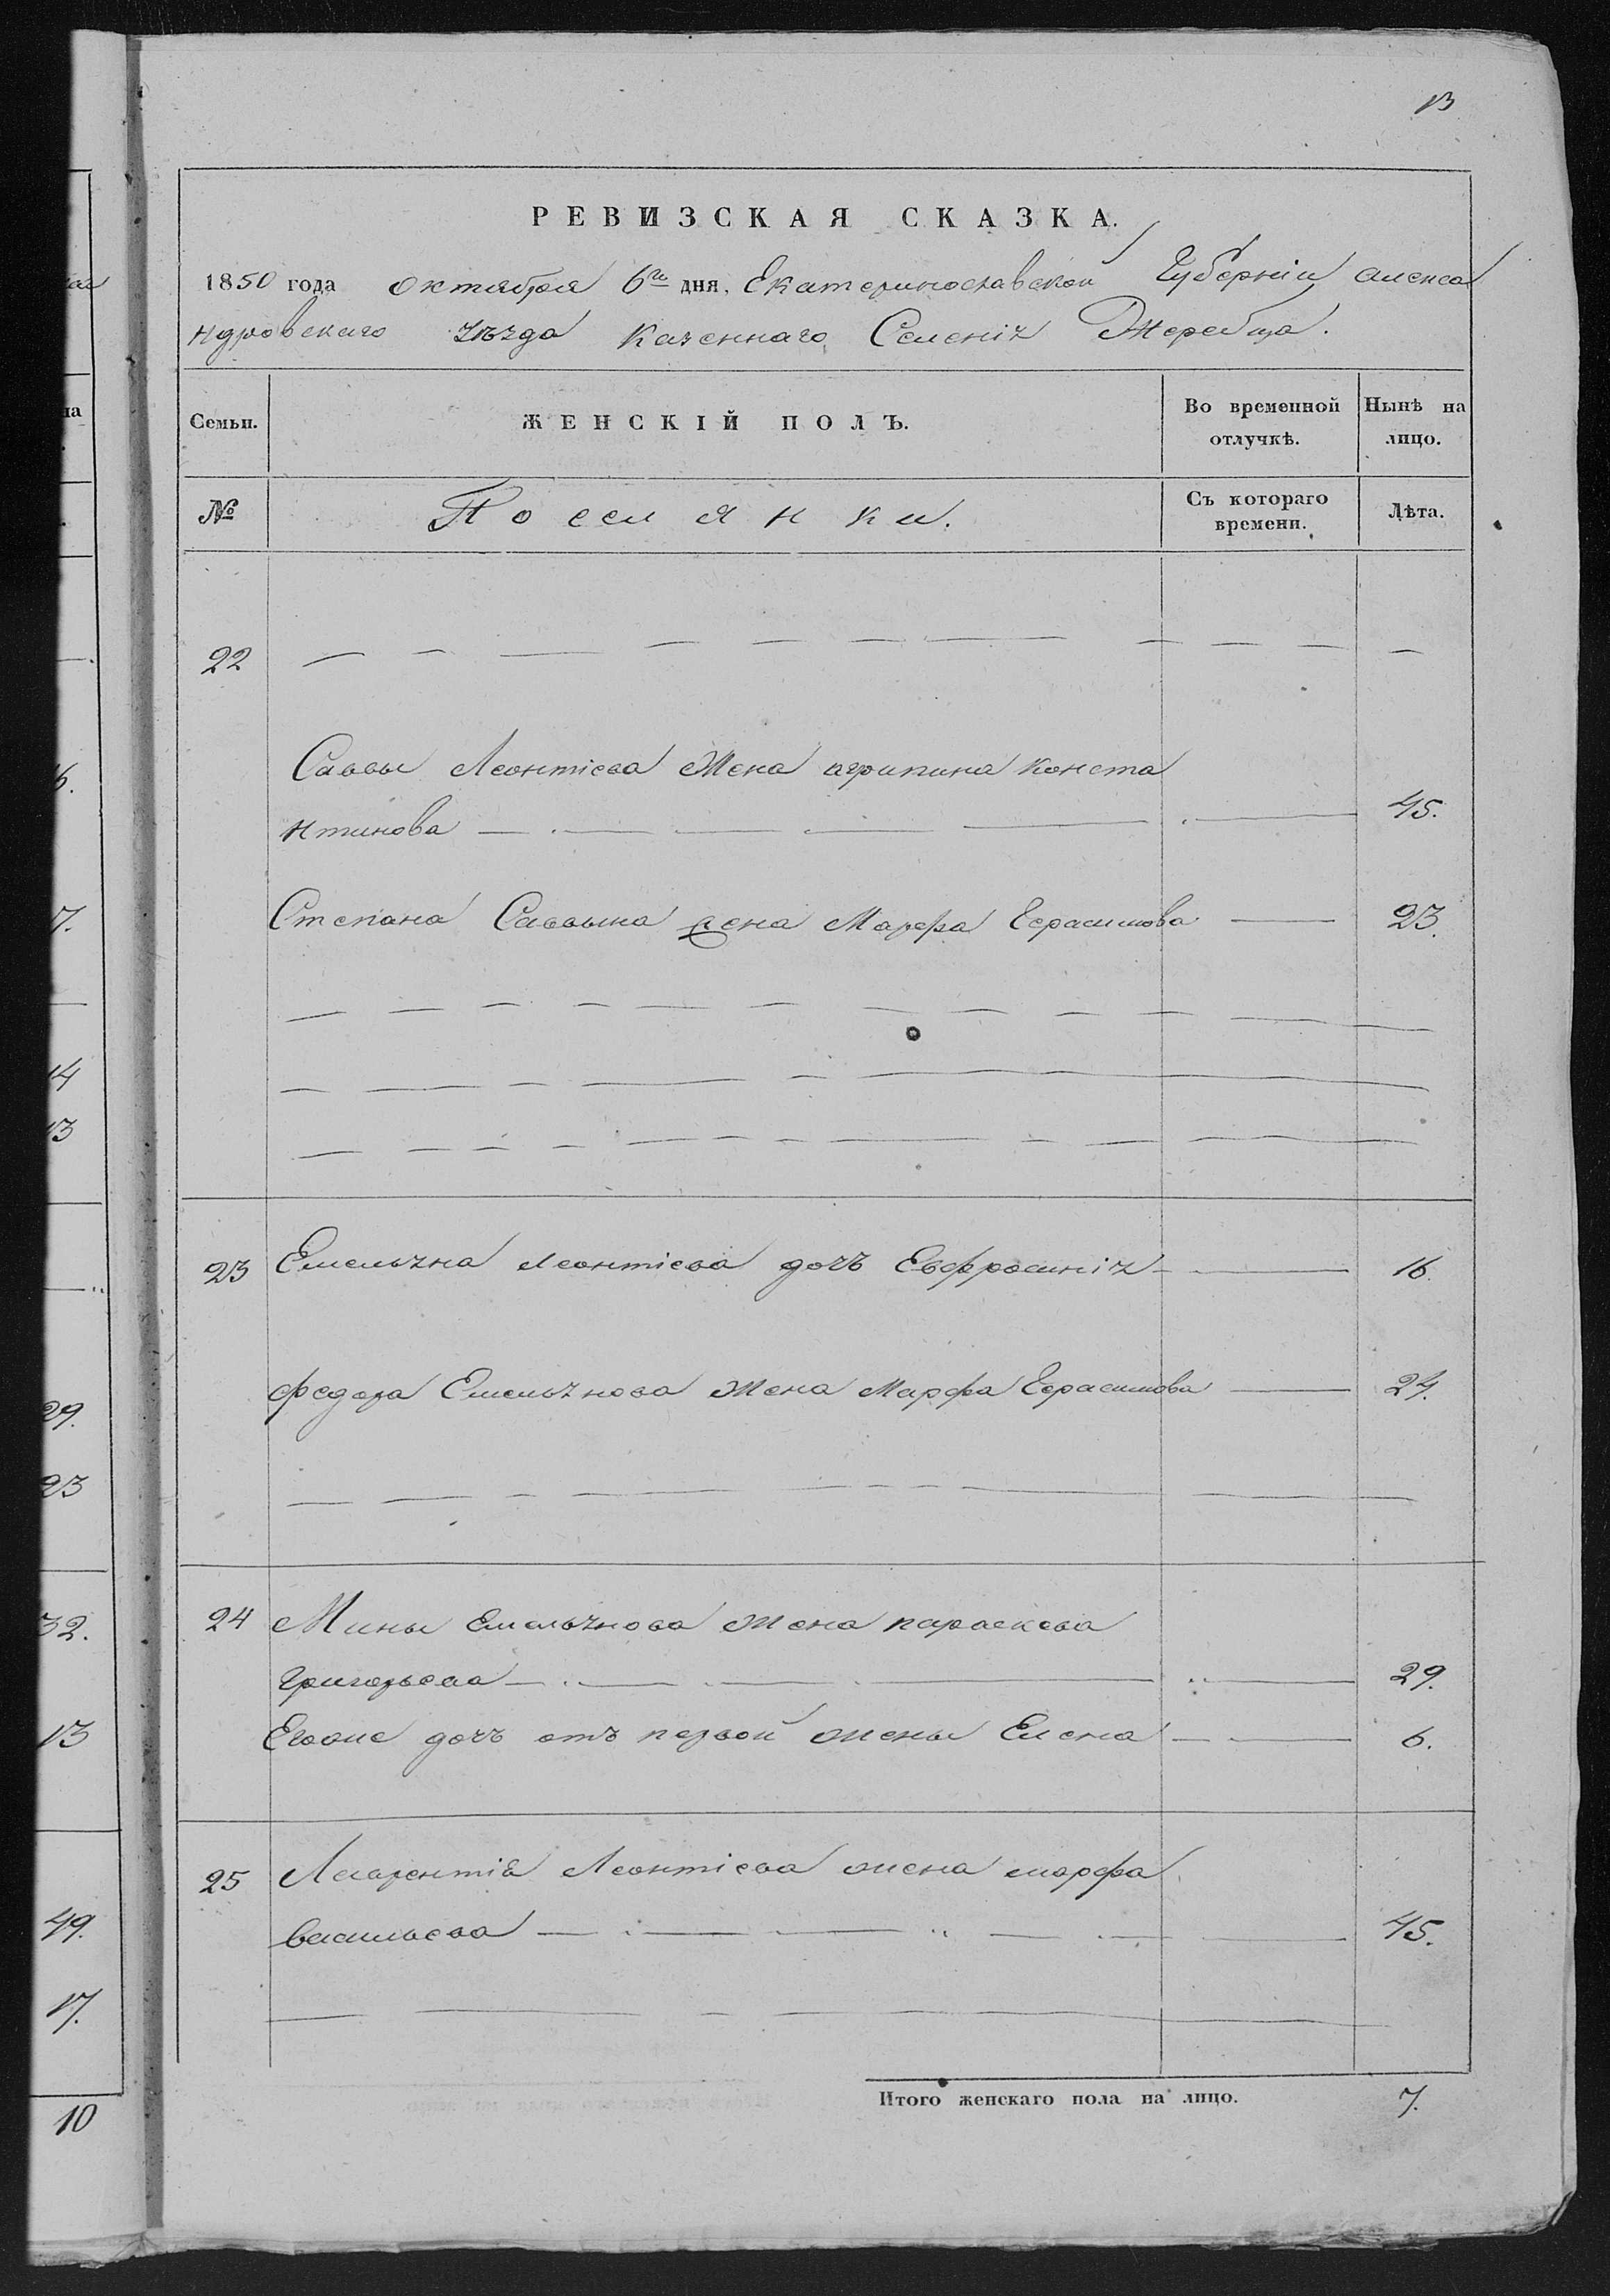 13
РЕВИЗСКАЯ СКАЗКА.
1850 года октября 6го дня, Екатеринославской Губерніи алекса
ндровскаго уѣзда казеннаго Селенія Жеребца.
Семьи.
ЖЕНСКІЙ ПОЛЪ.
Во временной отлучкѣ.
Нынѣ на лицо.
№
Поселянки.
Съ котораго времени.
Лѣта.
22
Саввы Леонтіева Жена агрипина Конста
нтинова 45.
Степана Саввина жена Марфа Герасимова 23.
23 Емельяна Леонтіева дочь Евфросинія 16.
Федора Емельянова Жена Марфа Герасимова 24.
24 Мины Емельянова Жена параскева
Григорьева 29.
Егоже дочь отъ первой жены Елена 6.
25 Лаврентія Леонтіева жена марфа
васильева 45.
Итого женскаго пола на лицо. 7.
6.
7.
14
13
29.
23
32.
13
49.
17.
10